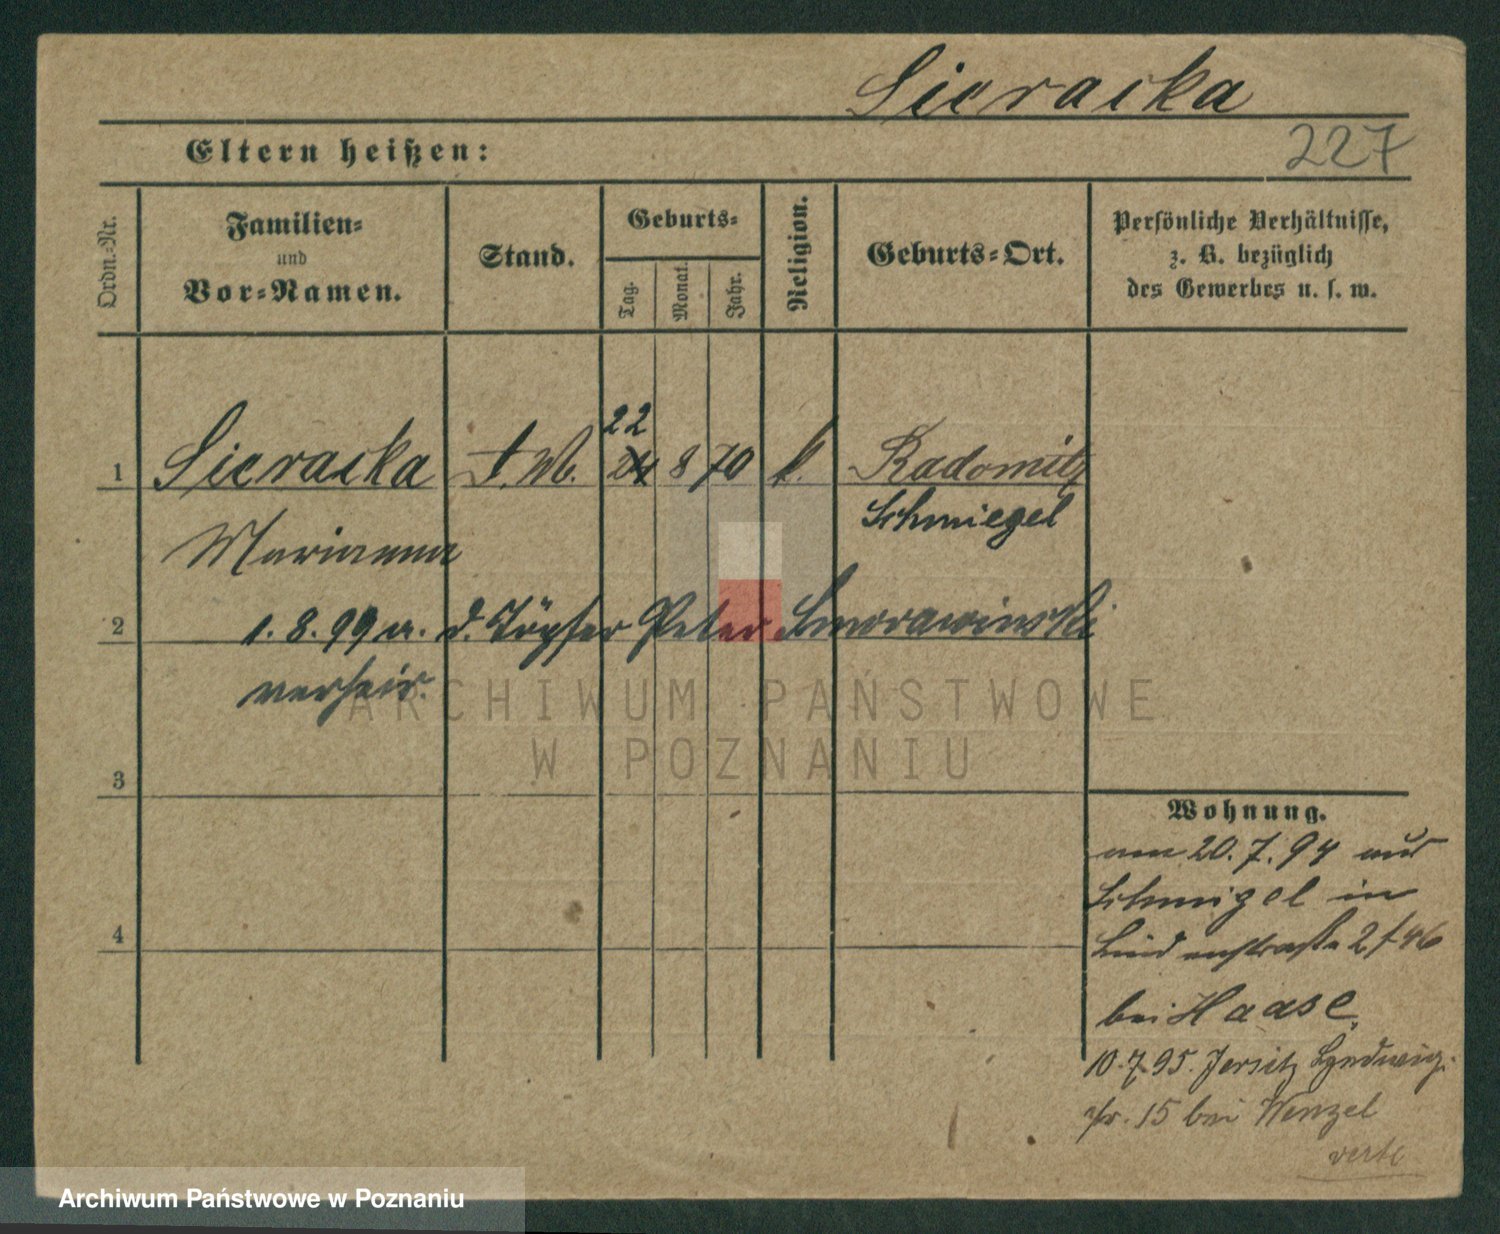 Sieracka
227
Eltern heißen:
Ordn.-Nr.
Familien-
und
Vor-Namen.
Stand.
Geburts-
Tag.
Monat.
Jahr.
Religion.
Geburts-Ort.
Persönliche Verhältnisse,
z. B. bezüglich
des Gewerbes u. s. w.
22
1 Sieracka 24 8 70 k. Radomitz
Schmiegel
Marianna
2 1.8.99 a. d. Töpfer Peter Smorawinski
verheir.
ARCHIWUM PAŃSTWOWE
W POZNANIU
3
Wohnung.
20.7.94 aus
Schmigel in
4
Lindenstraße 2
bei Haase
10.7.95. Jersitz
15 bei Wenzel
verte
Archiwum Państwowe w Poznaniu